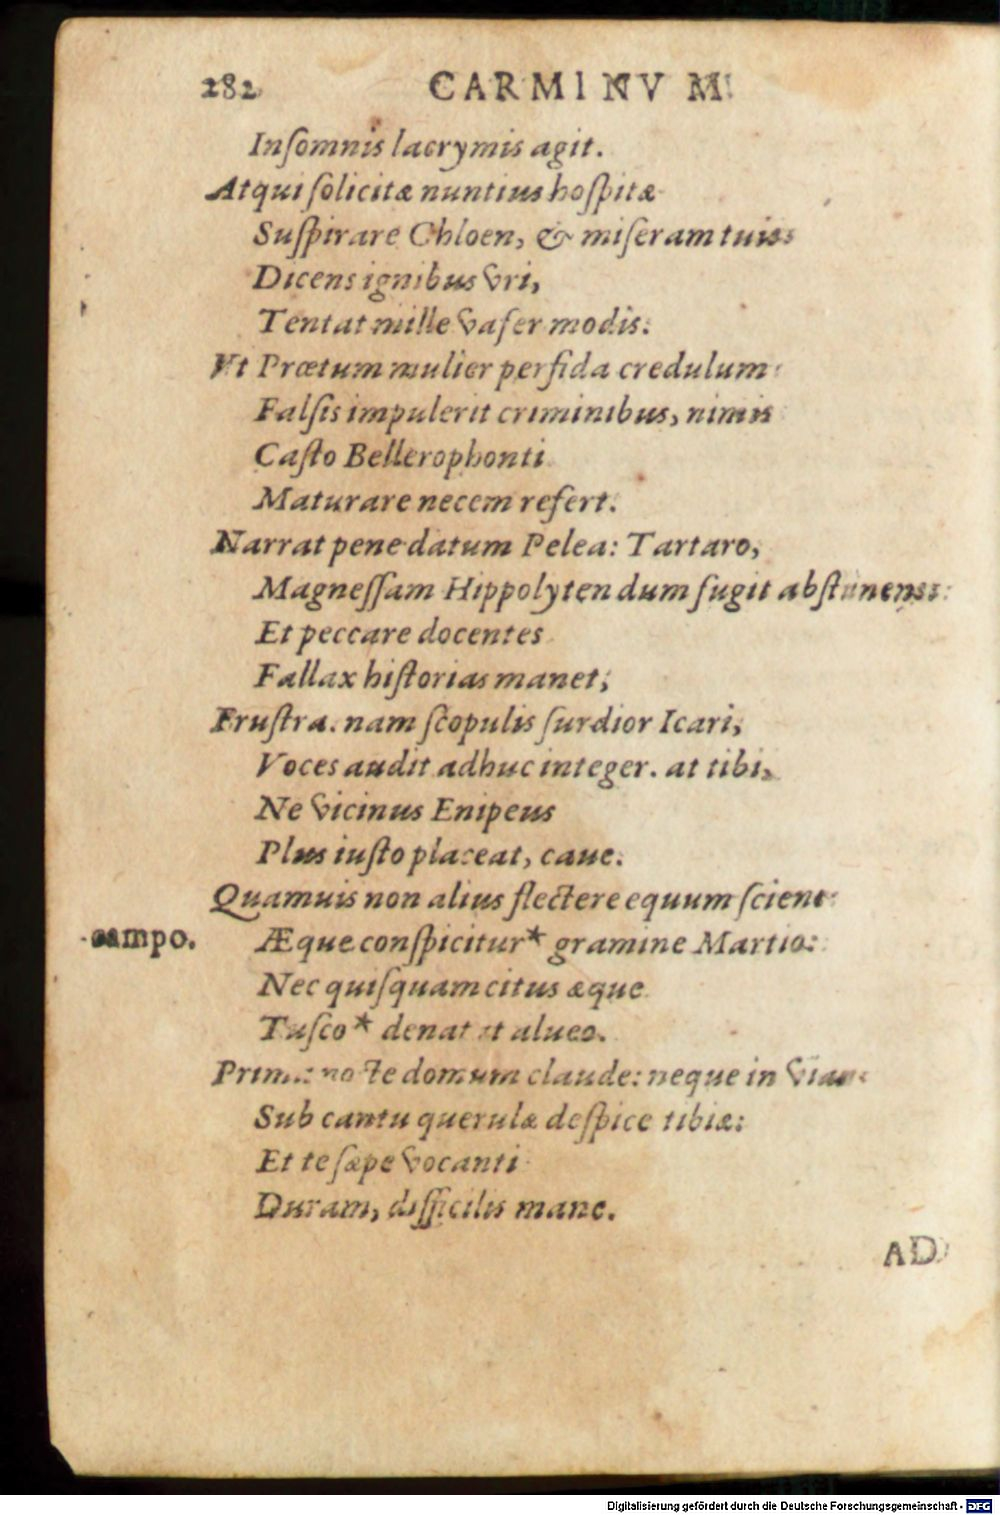 282 CARMINVM
Inſomnis lacrymis agit.
Atqui ſolicitæ nuntius hoſpitæ
Suſpirare Chloen, & miſeram tuis
Dicens ignibus vri,
Tentat mille vafer modis.
Vt Prœtum mulier perfida credulum
Falſis impulerit criminibus, nimis
Caſto Bellerophonti
Maturare necem refert.
Narrat pene datum Pelea: Tartaro,
Magneſſam Hippolyten dum fugit abſtinens:
Et peccare docentes
Fallax hiſtorias manet;
Fruſtra. nam ſcopulis ſurdior Icari,
Voces audit adhuc integer. at tibi,
Ne vicinus Enipeus
Plus iuſto placeat, caue.
Quamuis non alius flectere equum ſciens
campo. Æque conſpicitur* gramine Martio:
Nec quiſquam citus æque
Tuſco* denatat alueo.
Prima nocte domum claude: neque in vias
Sub cantu querulæ deſpice tibiæ:
Et te ſæpe vocanti
Duram, difficilis mane.
AD
Digitalisierung gefördert durch die Deutsche Forschungsgemeinschaft - DFG